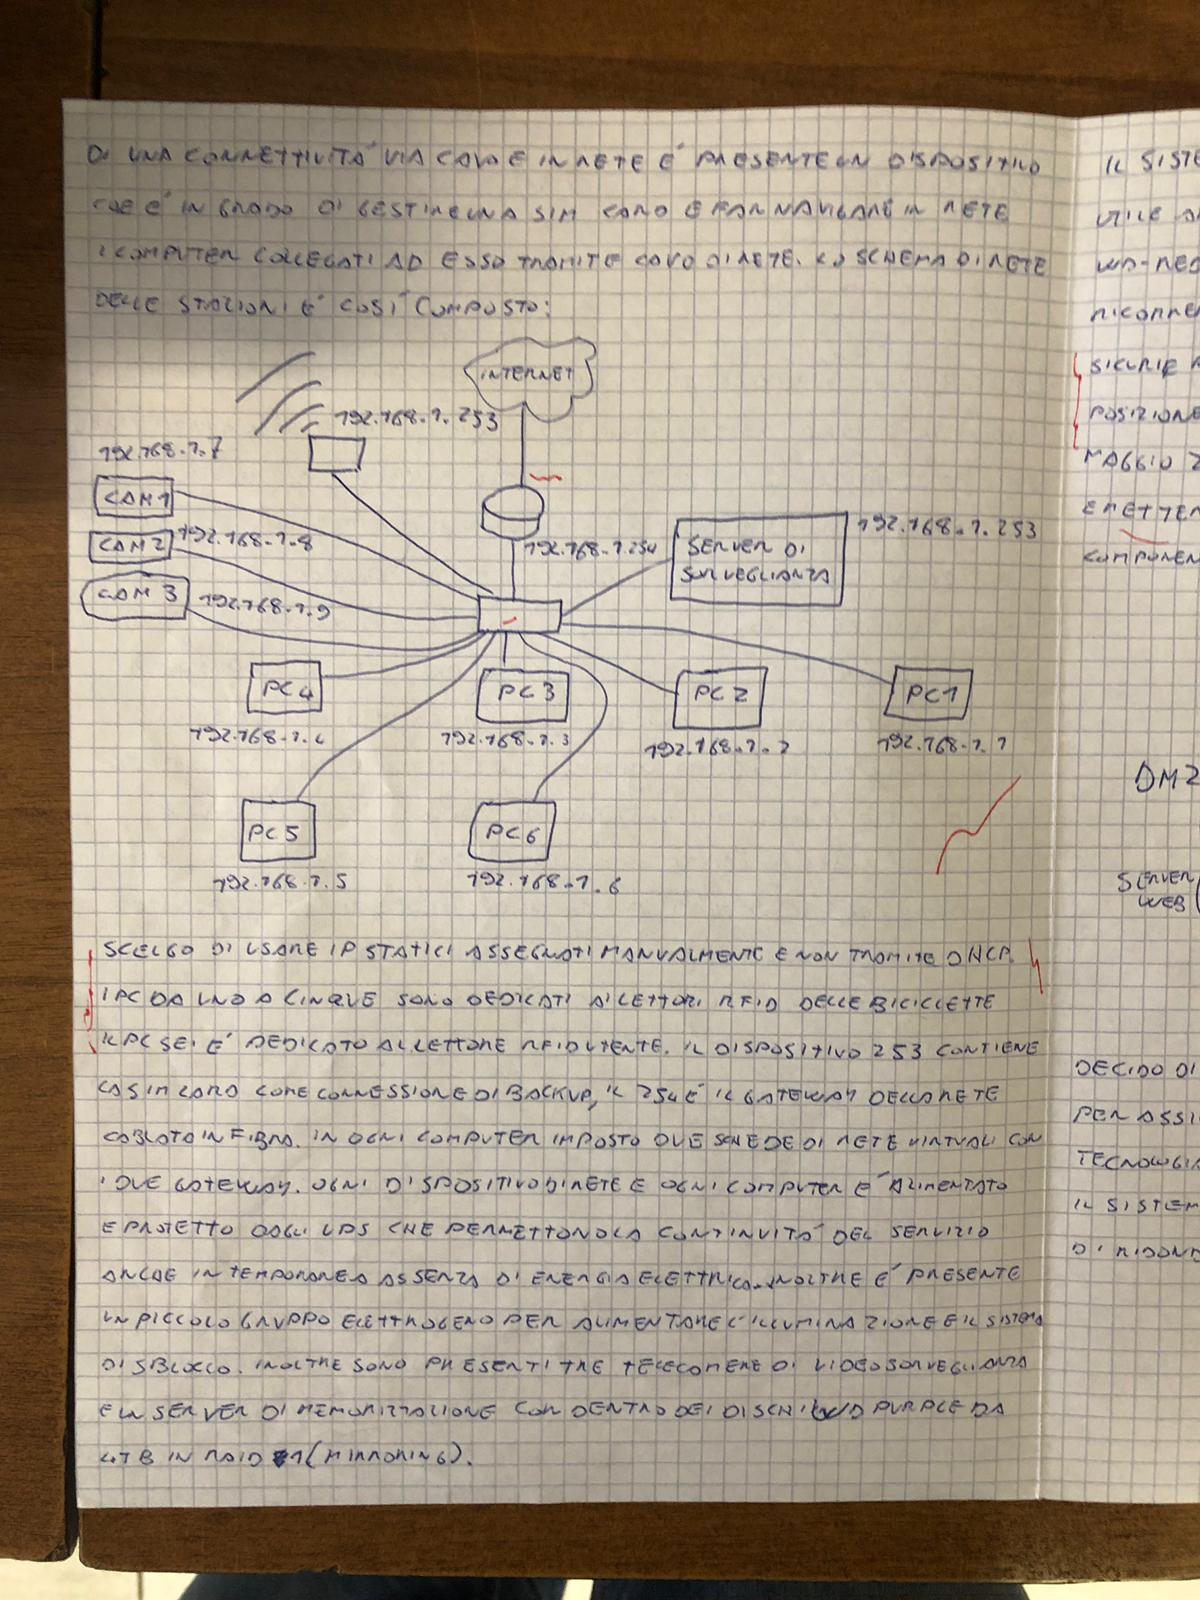 DI UNA CONNETTIVITÀ VIA CAVO E IN RETE È PRESENTE UN DISPOSITIVO
CHE È IN GRADO DI GESTIRE UNA SIM CARD E FAR NAVIGARE IN RETE
I COMPUTER COLLEGATI AD ESSO TRAMITE CAVO DI RETE. LO SCHEMA DI RETE
DELLE STAZIONI È COSÌ COMPOSTO:
INTERNET
192.168.1.253
192.168.1.7
CAM 1
CAM 2
192.168.1.8
CAM 3
192.168.1.9
192.168.1.254
SERVER DI
SORVEGLIANZA
192.168.1.253
PC4
PC3
PC2
PC1
192.168.1.4
192.168.1.3
192.168.1.2
192.168.1.1
PC5
PC6
192.168.1.5
192.168.1.6
SCELGO DI USARE IP STATICI ASSEGNATI MANUALMENTE E NON TRAMITE DHCP.
I PC DA UNO A CINQUE SONO DEDICATI AI LETTORI RFID DELLE BICICLETTE
IL PC SEI È DEDICATO AL LETTORE RFID UTENTE. IL DISPOSITIVO 253 CONTIENE
LA SIM CARD COME CONNESSIONE DI BACKUP, IL 254 È IL GATEWAY DELLA RETE
CABLATA IN FIBRA. IN OGNI COMPUTER IMPOSTO DUE SCHEDE DI RETE VIRTUALI CON
I DUE GATEWAY. OGNI DISPOSITIVO DI RETE E OGNI COMPUTER E' ALIMENTATO
E PROTETTO DAGLI UPS CHE PERMETTONO LA CONTINUITÀ DEL SERVIZIO
ANCHE IN TEMPORANEA ASSENZA DI ENERGIA ELETTRICA. INOLTRE È PRESENTE
UN PICCOLO GRUPPO ELETTROGENO PER ALIMENTARE L'ILLUMINAZIONE E IL SISTEMA
DI SBLOCCO. INOLTRE SONO PRESENTI TRE TELECAMERE DI VIDEOSORVEGLIANZA
E UN SERVER DI MEMORIZZAZIONE CON DENTRO DEI DISCHI WD PURPLE DA
4TB IN RAID 1 (MIRRORING).
IL SISTE
UTILE
RICONNE
SICURIE
POSIZIONE
MAGGIO
EMETTER
COMPONEN
DMZ
SERVER
WEB
DECIDO DI
PER ASSI
TECNOLOGI
IL SISTEM
DI RIDOND